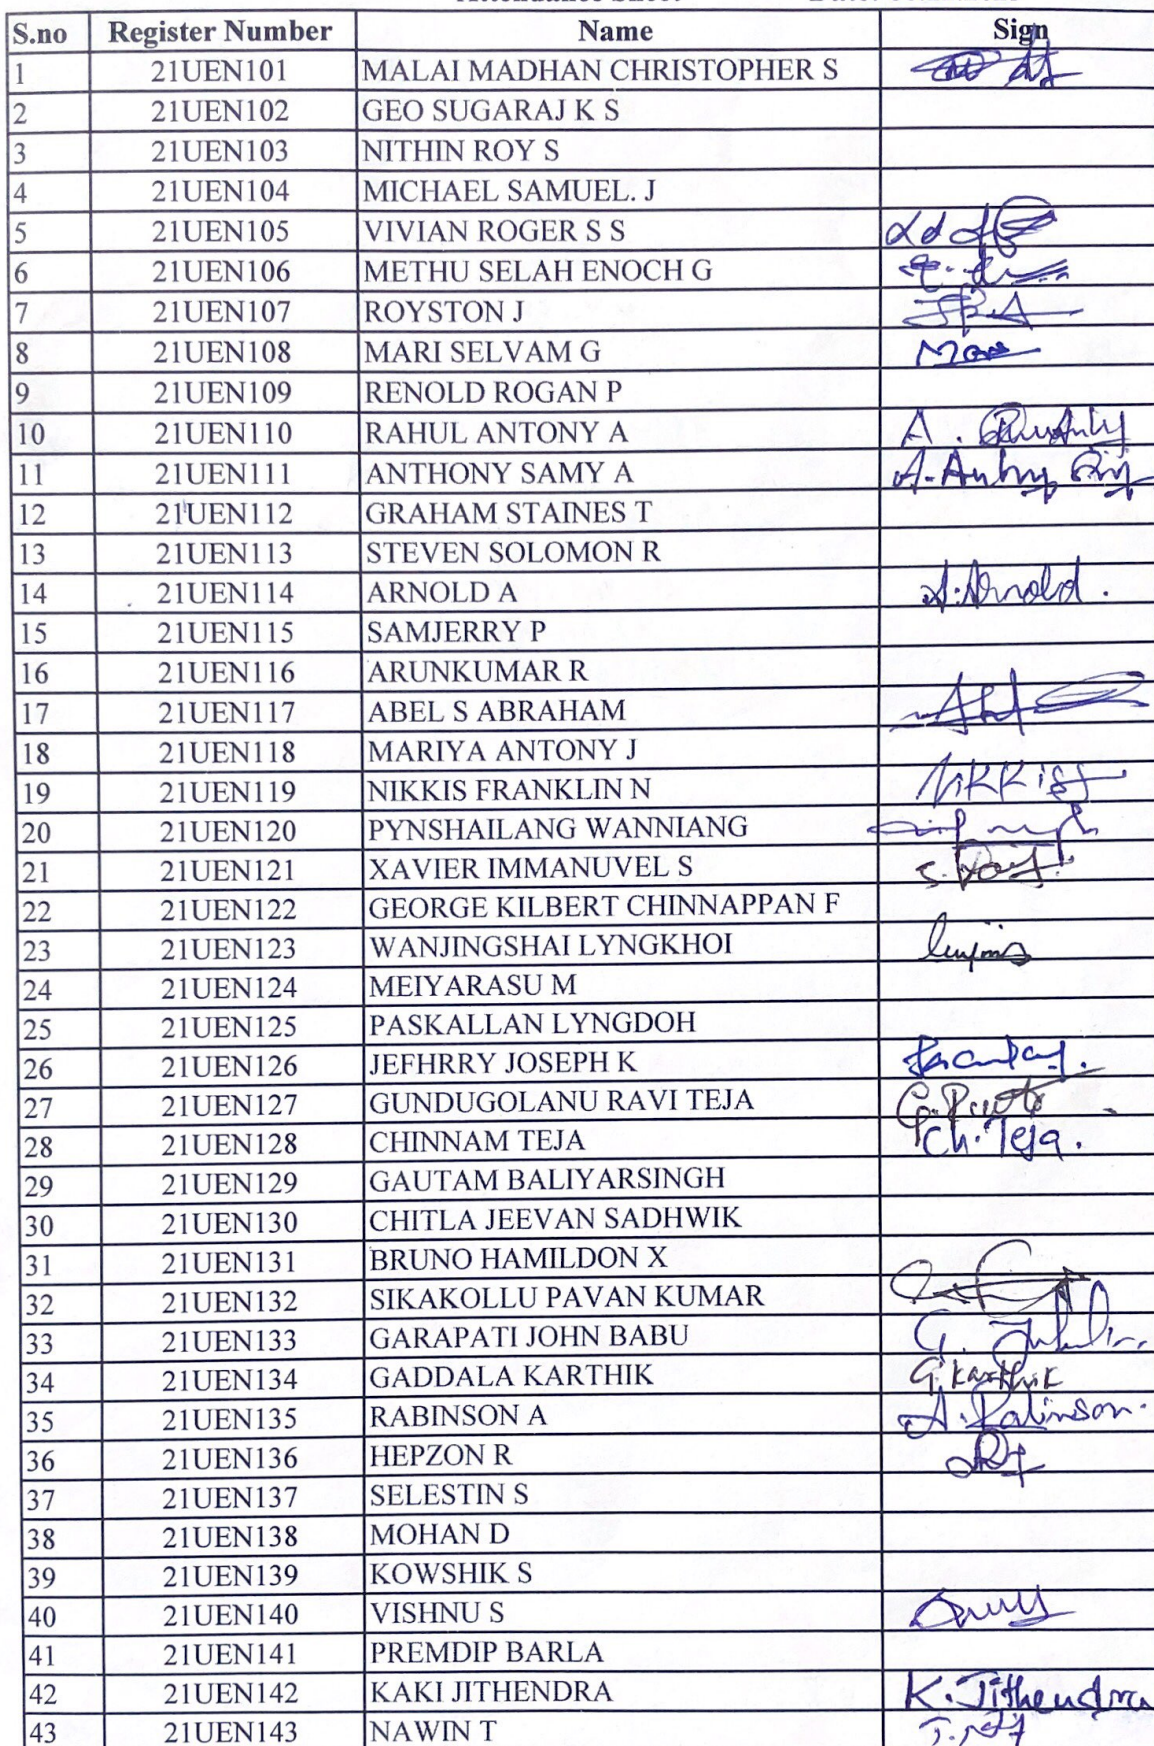 S.no Register Number Name Sign
1 21UEN101 MALAI MADHAN CHRISTOPHER S
2 21UEN102 GEO SUGARAJ K S
3 21UEN103 NITHIN ROY S
4 21UEN104 MICHAEL SAMUEL. J
5 21UEN105 VIVIAN ROGER S S
6 21UEN106 METHU SELAH ENOCH G
7 21UEN107 ROYSTON J
8 21UEN108 MARI SELVAM G
9 21UEN109 RENOLD ROGAN P
10 21UEN110 RAHUL ANTONY A A.
11 21UEN111 ANTHONY SAMY A
12 21UEN112 GRAHAM STAINES T
13 21UEN113 STEVEN SOLOMON R
14 21UEN114 ARNOLD A A. Arnold.
15 21UEN115 SAMJERRY P
16 21UEN116 ARUNKUMAR R
17 21UEN117 ABEL S ABRAHAM
18 21UEN118 MARIYA ANTONY J
19 21UEN119 NIKKIS FRANKLIN N
20 21UEN120 PYNSHAILANG WANNIANG
21 21UEN121 XAVIER IMMANUVEL S
22 21UEN122 GEORGE KILBERT CHINNAPPAN F
23 21UEN123 WANJINGSHAI LYNGKHOI
24 21UEN124 MEIYARASU M
25 21UEN125 PASKALLAN LYNGDOH
26 21UEN126 JEFHRRY JOSEPH K
27 21UEN127 GUNDUGOLANU RAVI TEJA
28 21UEN128 CHINNAM TEJA Ch. Teja.
29 21UEN129 GAUTAM BALIYARSINGH
30 21UEN130 CHITLA JEEVAN SADHWIK
31 21UEN131 BRUNO HAMILDON X
32 21UEN132 SIKAKOLLU PAVAN KUMAR
33 21UEN133 GARAPATI JOHN BABU
34 21UEN134 GADDALA KARTHIK G. Karthik
35 21UEN135 RABINSON A A. Rabinson.
36 21UEN136 HEPZON R
37 21UEN137 SELESTIN S
38 21UEN138 MOHAN D
39 21UEN139 KOWSHIK S
40 21UEN140 VISHNU S
41 21UEN141 PREMDIP BARLA
42 21UEN142 KAKI JITHENDRA K. Jithendra
43 21UEN143 NAWIN T